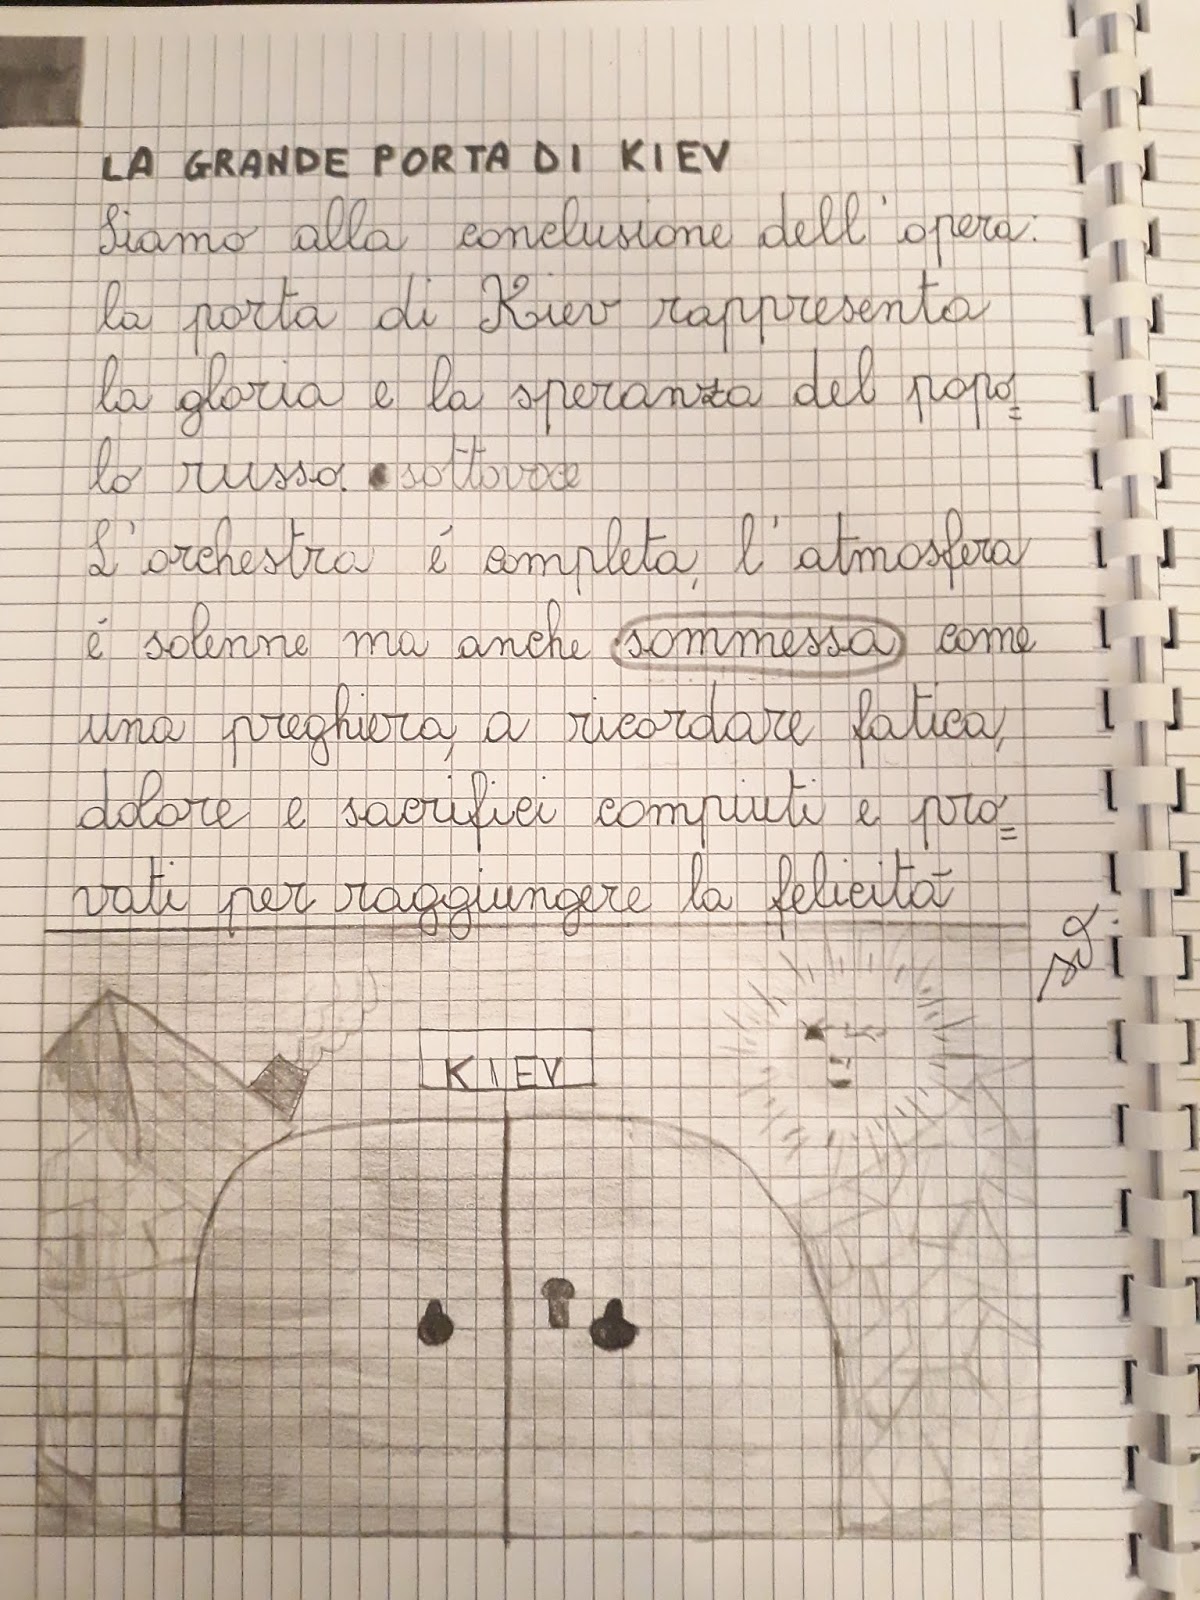 LA GRANDE PORTA DI KIEV
Siamo alla conclusione dell'opera:
la porta di Kiev rappresenta
la gloria e la speranza del popo=
lo russo. sottovoce
L'orchestra é completa, l'atmosfera
é solenne ma anche sommessa come
una preghiera, a ricordare fatica,
dolore e sacrifici compiuti e pro=
vati per raggiungere la felicitá
KIEV